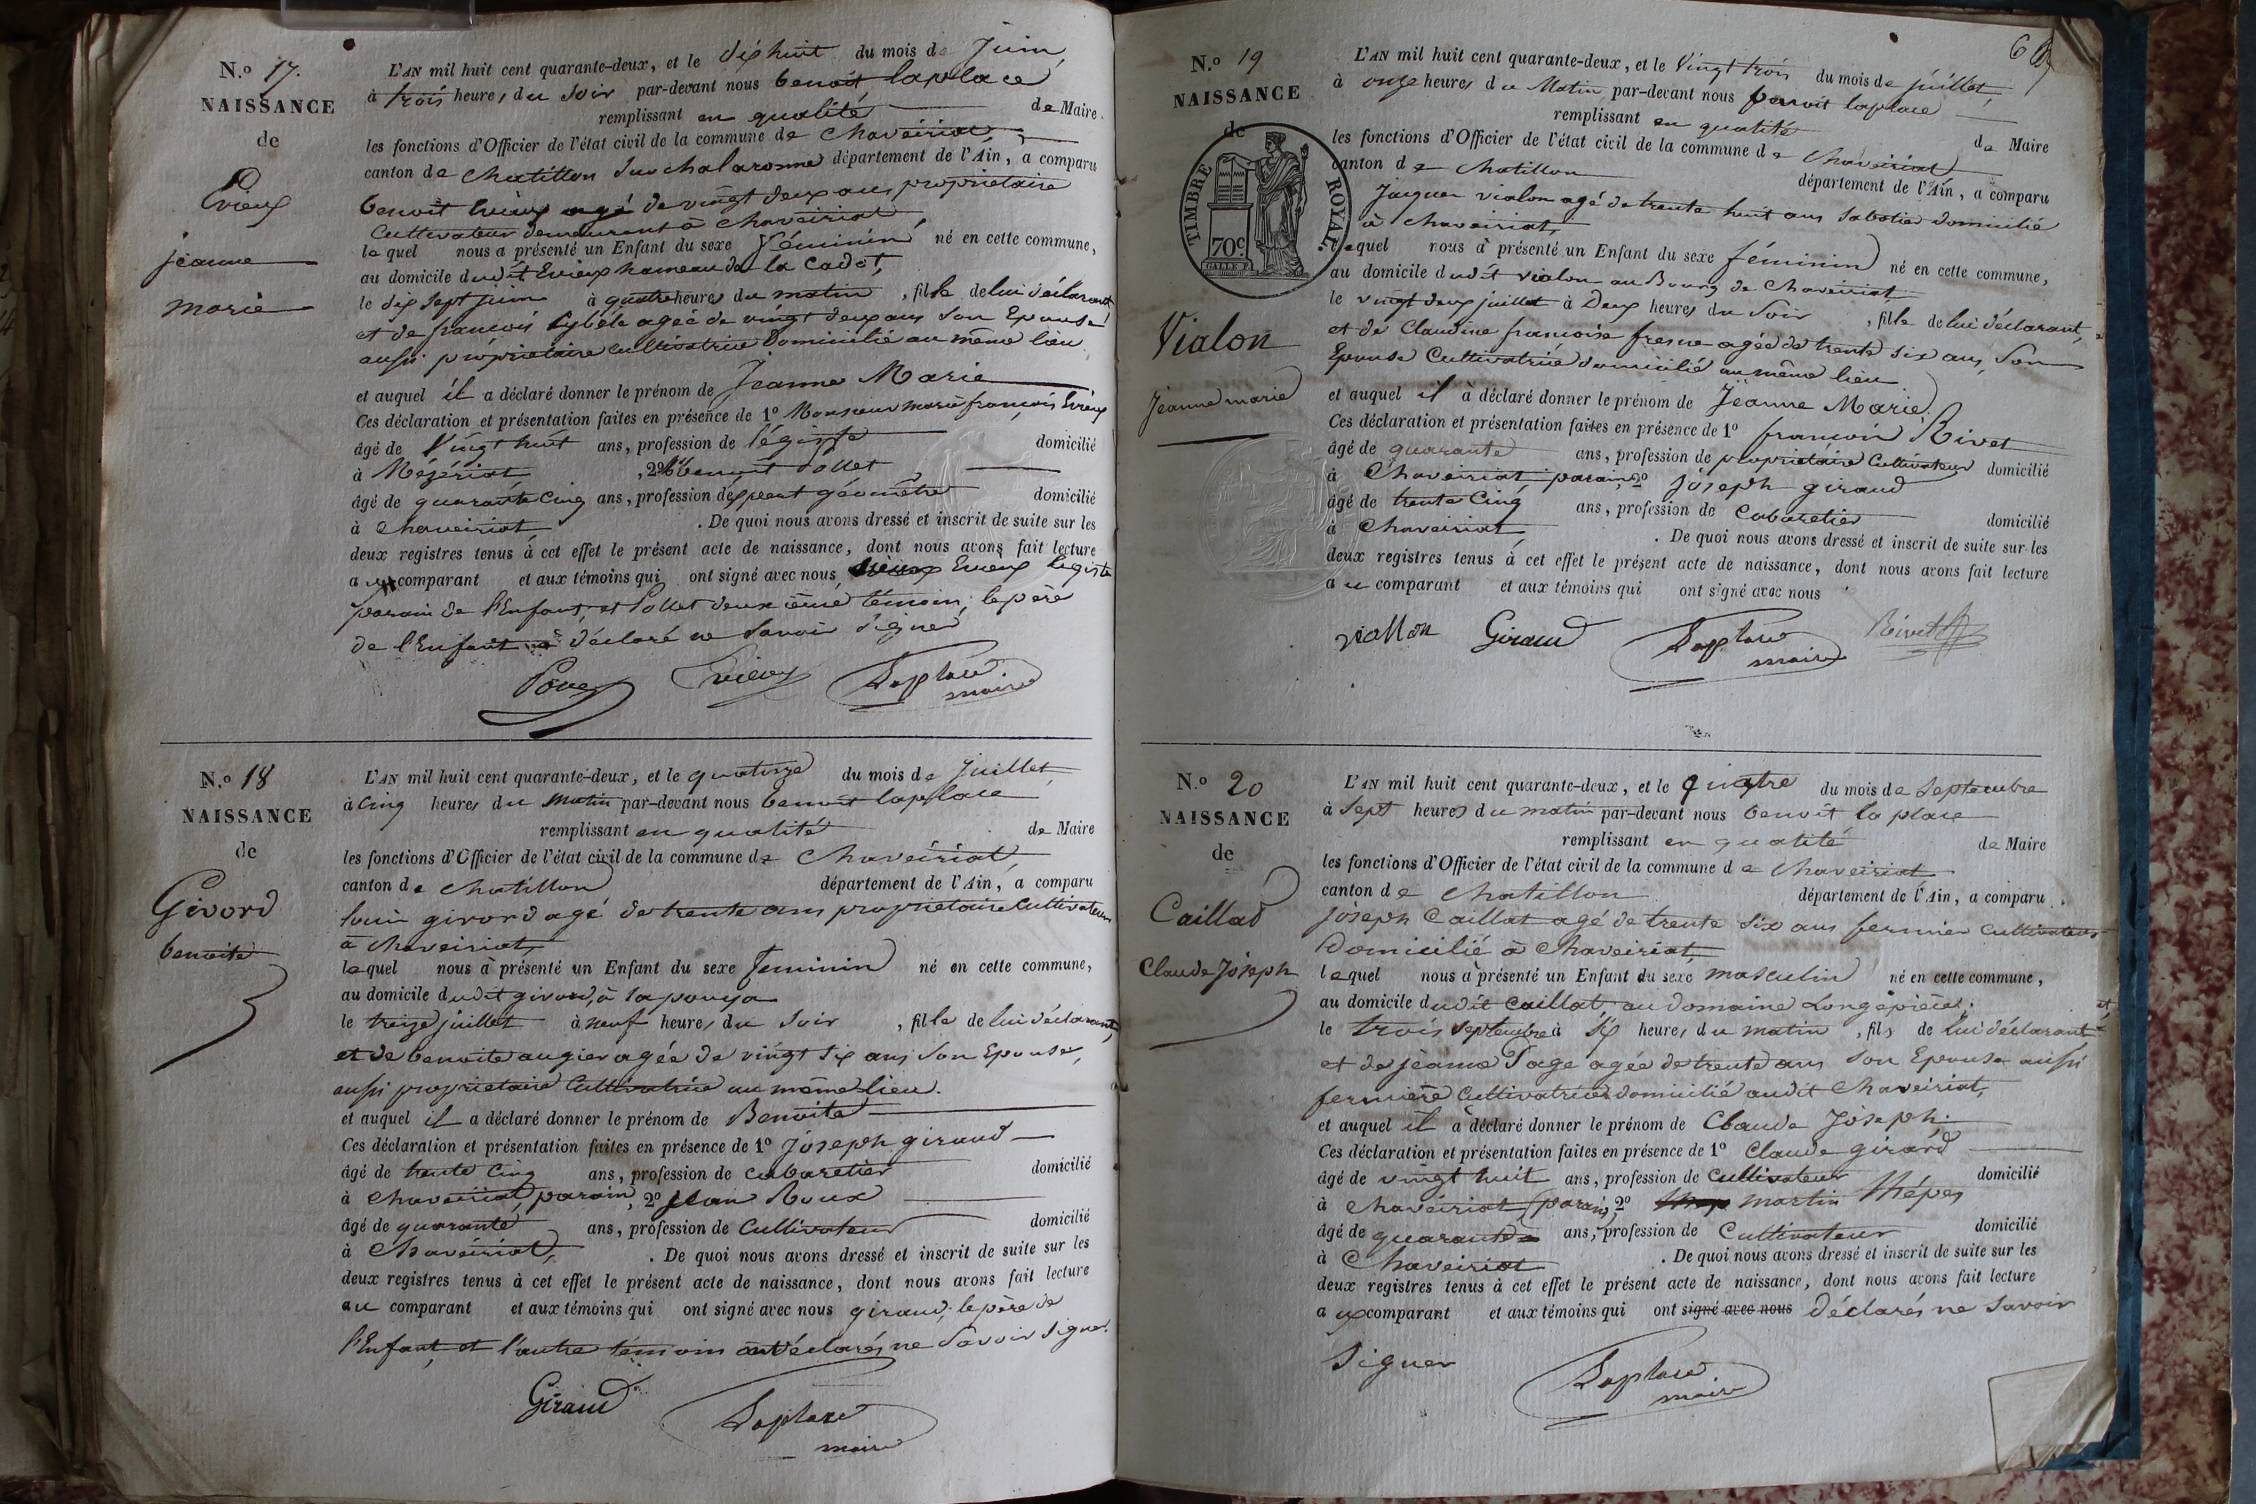 N.º 17.
NAISSANCE
de
Evieux
jeanne
marie
L'AN mil huit cent quarante-deux, et le dix huit du mois de Juin,
à trois heures du soir par-devant nous benoit laplace
remplissant en qualité de Maire
les fonctions d'Officier de l'état civil de la commune de Chaveiriat,
canton de Chatillon sur chalaronne département de l'Ain, a comparu
benoit Evieux agé de vingt deux ans propriétaire
Cultivateur demeurant à Chaveiriat
lequel nous a présenté un Enfant du sexe féminin né en cette commune,
au domicile dudit Evieux hameau de la Cadot,
le dix sept juin à quatre heures du matin, fille de lui déclarant
et de agée de vingt deux ans son Epouse
aussi propriétaire cultivatrice Domicilié au même lieu
et auquel il a déclaré donner le prénom de Jeanne Marie
Ces déclaration et présentation faites en présence de 1º Monsieur marie françois Evieux
âgé de Vingt huit ans, profession de légiste domicilié
à Mézériat, 2º benoit Pollet
âgé de quarante cinq ans, profession d'expert géomètre domicilié
à Chaveiriat, . De quoi nous avons dressé et inscrit de suite sur les
deux registres tenus à cet effet le présent acte de naissance, dont nous avons fait lecture
aux comparant et aux témoins qui ont signé avec nous, Evieux légiste
parain de l'Enfant, et Pollet deuxième témoin, le père
de l'Enfant a déclaré ne savoir signer
Evieux Laplace
maire
N.º 18
NAISSANCE
de
Givord
benoite
L'AN mil huit cent quarante-deux, et le quatorze du mois de Juillet,
à Cinq heures du matin par-devant nous benoit laplace
remplissant en qualité de Maire
les fonctions d'Officier de l'état civil de la commune de Chaveiriat,
canton de Chatillon département de l'Ain, a comparu
louis givord agé de trente ans propriétaire Cultivateur
à Chaveiriat,
lequel nous a présenté un Enfant du sexe Feminin né en cette commune,
au domicile dudit givord, à la pouya
le treize juillet à neuf heures du soir, fille de lui déclarant,
et de benoite augier agée de vingt six ans son Epouse,
aussi propriétaire Cultivatrice au même lieu.
et auquel il a déclaré donner le prénom de Benoite
Ces déclaration et présentation faites en présence de 1º Joseph giraud
âgé de trente cinq ans, profession de cabaretier domicilié
à Chaveiriat, parain, 2º jean Roux
âgé de quarante ans, profession de Cultivateur domicilié
à Chaveiriat, . De quoi nous avons dressé et inscrit de suite sur les
deux registres tenus à cet effet le présent acte de naissance, dont nous avons fait lecture
au comparant et aux témoins qui ont signé avec nous giraud, le père de
l'Enfant, et l'autre témoin ont déclarés ne savoir signer.
Giraud Laplace
maire
N.º 19
NAISSANCE
de
TIMBRE ROYAL.
70c
Vialon
Jeanne marie
L'AN mil huit cent quarante-deux, et le Vingt trois du mois de juillet,
à onze heures du Matin par-devant nous benoit laplace
remplissant en qualité de Maire
les fonctions d'Officier de l'état civil de la commune de Chaveiriat
canton de Chatillon département de l'Ain, a comparu
Jacques vialon agé de trente huit ans Sabotier domicilié
à Chaveiriat,
lequel nous a présenté un Enfant du sexe féminin né en cette commune,
au domicile dudit vialon au Bourg de Chaveiriat
le vingt deux juillet à Deux heures du Soir, fille de lui déclarant,
et de Claudine françoise fresne agée de trente six ans, son
Epouse Cultivatrice domicilié au même lieu
et auquel il a déclaré donner le prénom de Jeanne Marie.
Ces déclaration et présentation faites en présence de 1º françois Rivet
âgé de quarante ans, profession de propriétaire Cultivateur domicilié
à Chaveiriat parain, 2º joseph giraud
âgé de trente Cinq ans, profession de Cabaretier domicilié
à Chaveiriat, . De quoi nous avons dressé et inscrit de suite sur les
deux registres tenus à cet effet le présent acte de naissance, dont nous avons fait lecture
au comparant et aux témoins qui ont signé avec nous
viallon Giraud Laplace Rivet
maire
N.º 20
NAISSANCE
de
Caillad
Claude Joseph
L'AN mil huit cent quarante-deux, et le quatre du mois de Septembre
à Sept heures du matin par-devant nous benoit la place
remplissant en qualité de Maire
les fonctions d'Officier de l'état civil de la commune de Chaveiriat
canton de Chatillon département de l'Ain, a comparu
joseph Caillat agé de trente six ans fermier cultivateur
Domicilié à Chaveiriat,
lequel nous a présenté un Enfant du sexe masculin né en cette commune,
au domicile dudit Caillat, au domaine Longepierre.
le trois Septembre à six heures du matin, fils de lui déclarant
et de jeanne Page agée de trente ans son Epouse aussi
fermière Cultivatrice domicilié audit Chaveiriat,
et auquel il a déclaré donner le prénom de Claude Joseph.
Ces déclaration et présentation faites en présence de 1º Claude girard
âgé de vingt huit ans, profession de Cultivateur domicilié
à Chaveiriat (parain, 2º martin Thépes
âgé de quarante ans, profession de Cultivateur domicilié
à Chaveiriat . De quoi nous avons dressé et inscrit de suite sur les
deux registres tenus à cet effet le présent acte de naissance, dont nous avons fait lecture
aux comparant et aux témoins qui ont signé avec nous déclarés ne savoir
signer
Laplace
maire